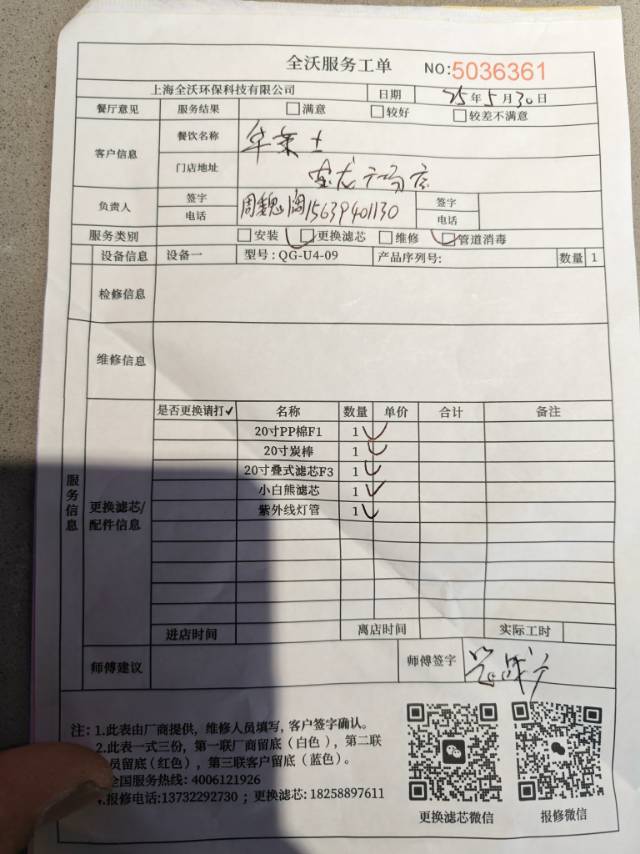 全沃服务工单 NO:5036361
上海全沃环保科技有限公司 日期 25年5月30日
餐厅意见 服务结果 □满意 □较好 □较差不满意
客户信息 餐饮名称 华莱士
门店地址 宝龙广场店
负责人 签字 周魏 签字
电话 15639401130 电话
服务类别 □安装 □更换滤芯 □维修 □管道消毒
设备信息 设备一 型号:QG-U4-09 产品序列号: 数量 1
检修信息
维修信息
服务信息
更换滤芯/配件信息
是否更换请打✓ 名称 数量 单价 合计 备注
20寸PP棉F1 1 ✓
20寸炭棒 1 ✓
20寸叠式滤芯F3 1 ✓
小白熊滤芯 1 ✓
紫外线灯管 1 ✓
进店时间 离店时间 实际工时
师傅建议 师傅签字
注: 1.此表由厂商提供，维修人员填写，客户签字确认。
2.此表一式三份，第一联厂商留底（白色），第二联
员留底(红色)，第三联客户留底（蓝色）。
全国服务热线: 4006121926
4.报修电话:13732292730 ; 更换滤芯: 18258897611
更换滤芯微信 报修微信